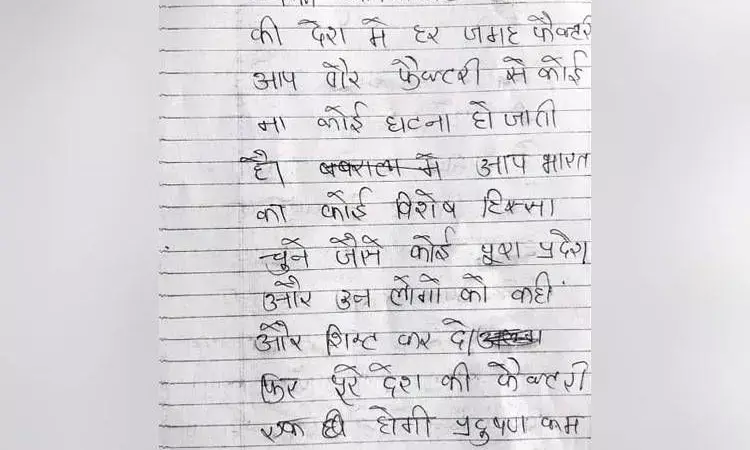 की देश में हर जगह फैक्टरी
आप और फैक्टरी से कोई
ना कोई घटना हो जाती
है। में आप भारत
का कोई विशेष हिस्सा
चुने जैसे कोई पूरा प्रदेश
और उन लोगों को कहीं
और शिफ्ट कर दे।
फिर पूरे देश की फैक्टरी
एक ही होगी प्रदुषण कम